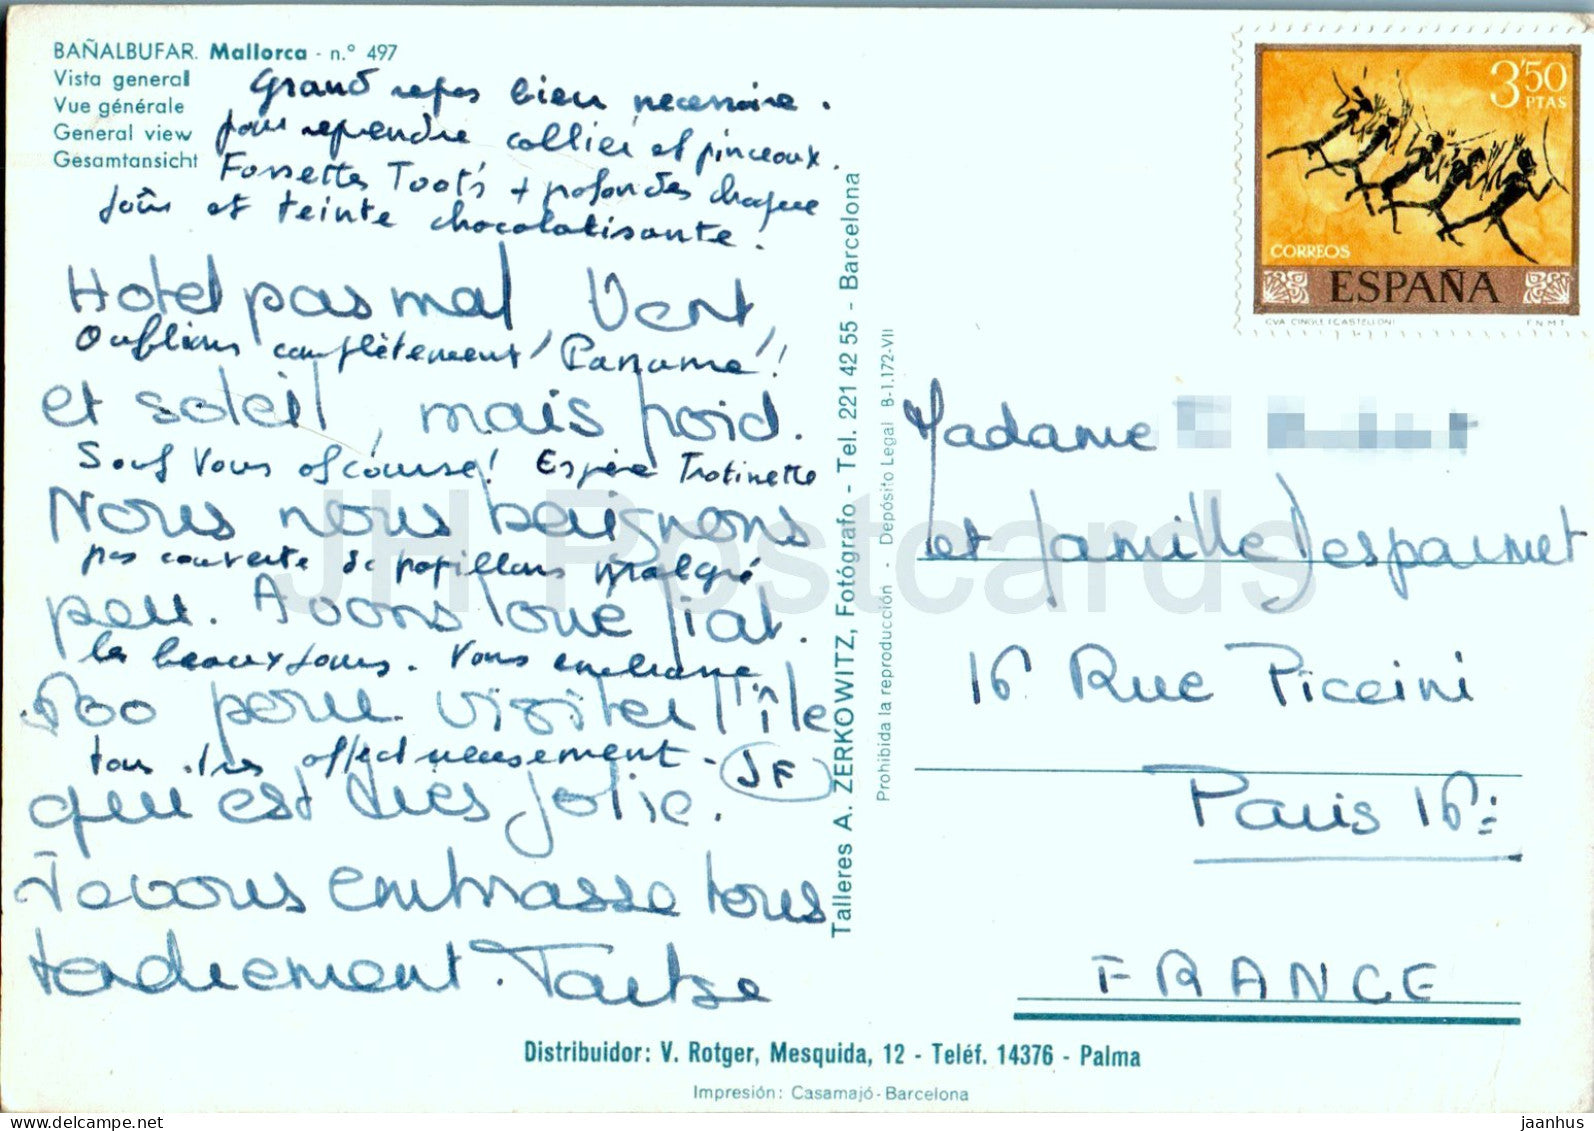 BAÑALBUFAR. Mallorca - n.° 497
Vista general
Vue générale
General view
Gesamtansicht
Grand repos bien necessaire.
pour reprendre collier et pinceaux.
Fossettes Toot's + profondes chaque
jour et teinte chocolatisante.
Hotel pas mal Vent,
Oublions complètement "Paname"!
et soleil, mais froid.
Sauf Vous of course! Espère Trotinette
Nous nous baignons
pas couverte de papillons malgré
peu. Avons loué fiat.
les beaux jours. Vous embrasse
600 pour visiter l'île
tous très affectueusement - JF
qui est très jolie.
Je vous embrasse tous
tendrement.
Talleres A. ZERKOWITZ, Fotógrafo - Tel. 221 42 55 - Barcelona
Prohibida la reproducción - Depósito Legal B-1.172-VII
3'50
PTAS
CORREOS
ESPAÑA
CVA CINGLE (CASTELLON)
F.N.M.T.
Madame
et famille Despainet
16 Rue Piccini
Paris 16e
FRANCE
Distribuidor: V. Rotger, Mesquida, 12 - Teléf. 14376 - Palma
Impresión: Casamajó-Barcelona
JH Postcards
jaanhus